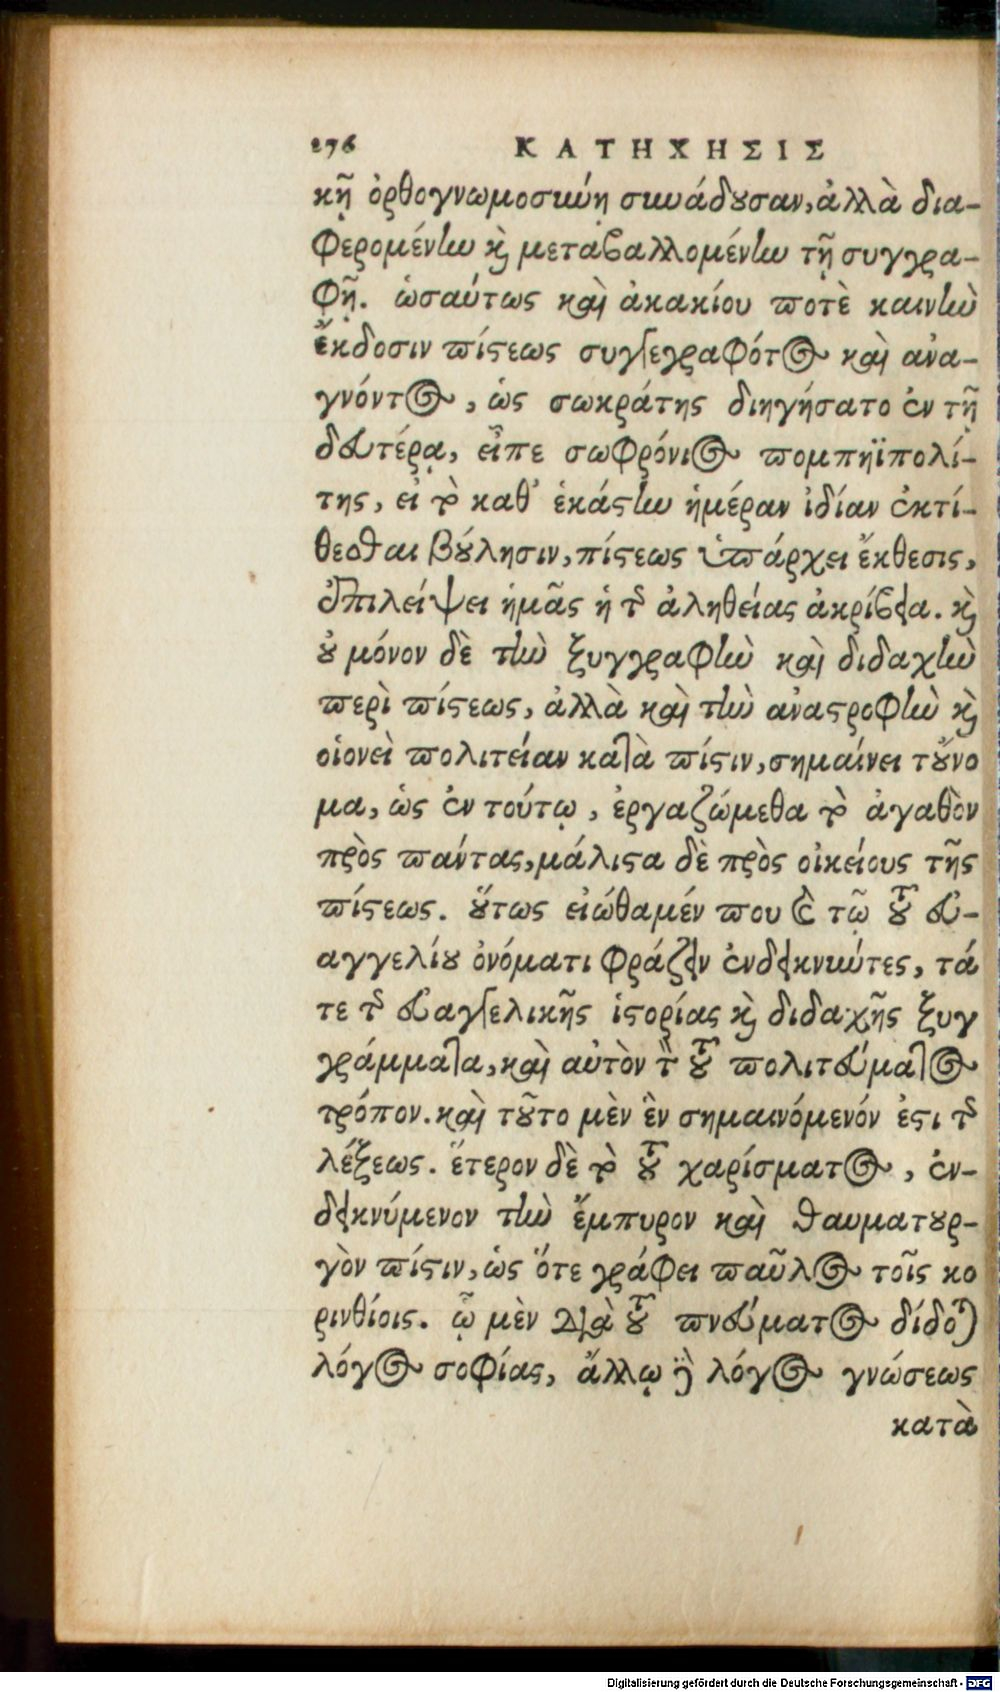 276 ΚΑΤΗΧΗΣΙΣ
κῇ ὀρθογνωμοσύνῃ συνάδουσαν, ἀλλὰ δια-
φερομένην καὶ μεταβαλλομένην τῇ συγγρα-
φῇ. ὡσαύτως καὶ ἀκακίου ποτὲ καινὴν
ἔκδοσιν πίστεως συγγεγραφότος καὶ ἀνα-
γνόντος, ὡς σωκράτης διηγήσατο ἐν τῇ
δευτέρᾳ, εἶπε σωφρόνιος πομπηϊπολί-
της, εἰ τὸ καθ' ἑκάστην ἡμέραν ἰδίαν ἐκτί-
θεσθαι βούλησιν, πίστεως ὑπάρχει ἔκθεσις,
ἐπιλείψει ἡμᾶς ἡ τῆς ἀληθείας ἀκρίβεια. καὶ
οὐ μόνον δὲ τὴν ξυγγραφὴν καὶ διδαχὴν
περὶ πίστεως, ἀλλὰ καὶ τὴν ἀναστροφὴν καὶ
οἱονεὶ πολιτείαν κατὰ πίστιν, σημαίνει τοὔνο
μα, ὡς ἐν τούτῳ, ἐργαζώμεθα τὸ ἀγαθὸν
πρὸς πάντας, μάλιστα δὲ πρὸς οἰκείους τῆς
πίστεως. οὕτως εἰώθαμέν που καὶ τῷ τοῦ εὐ-
αγγελίου ὀνόματι φράζειν ἐνδεικνύντες, τά
τε τῆς εὐαγγελικῆς ἱστορίας καὶ διδαχῆς ξυγ
γράμματα, καὶ αὐτὸν τὸν τοῦ πολιτεύματος
τρόπον. καὶ τοῦτο μὲν ἓν σημαινόμενόν ἐστι τῆς
λέξεως. ἕτερον δὲ τὸ τοῦ χαρίσματος, ἐν-
δεικνύμενον τὴν ἔμπυρον καὶ θαυματουρ-
γὸν πίστιν, ὡς ὅτε γράφει παῦλος τοῖς κο
ρινθίοις. ᾧ μὲν διὰ τοῦ πνεύματος δίδοται
λόγος σοφίας, ἄλλῳ δὲ λόγος γνώσεως
κατὰ
Digitalisierung gefördert durch die Deutsche Forschungsgemeinschaft - DFG